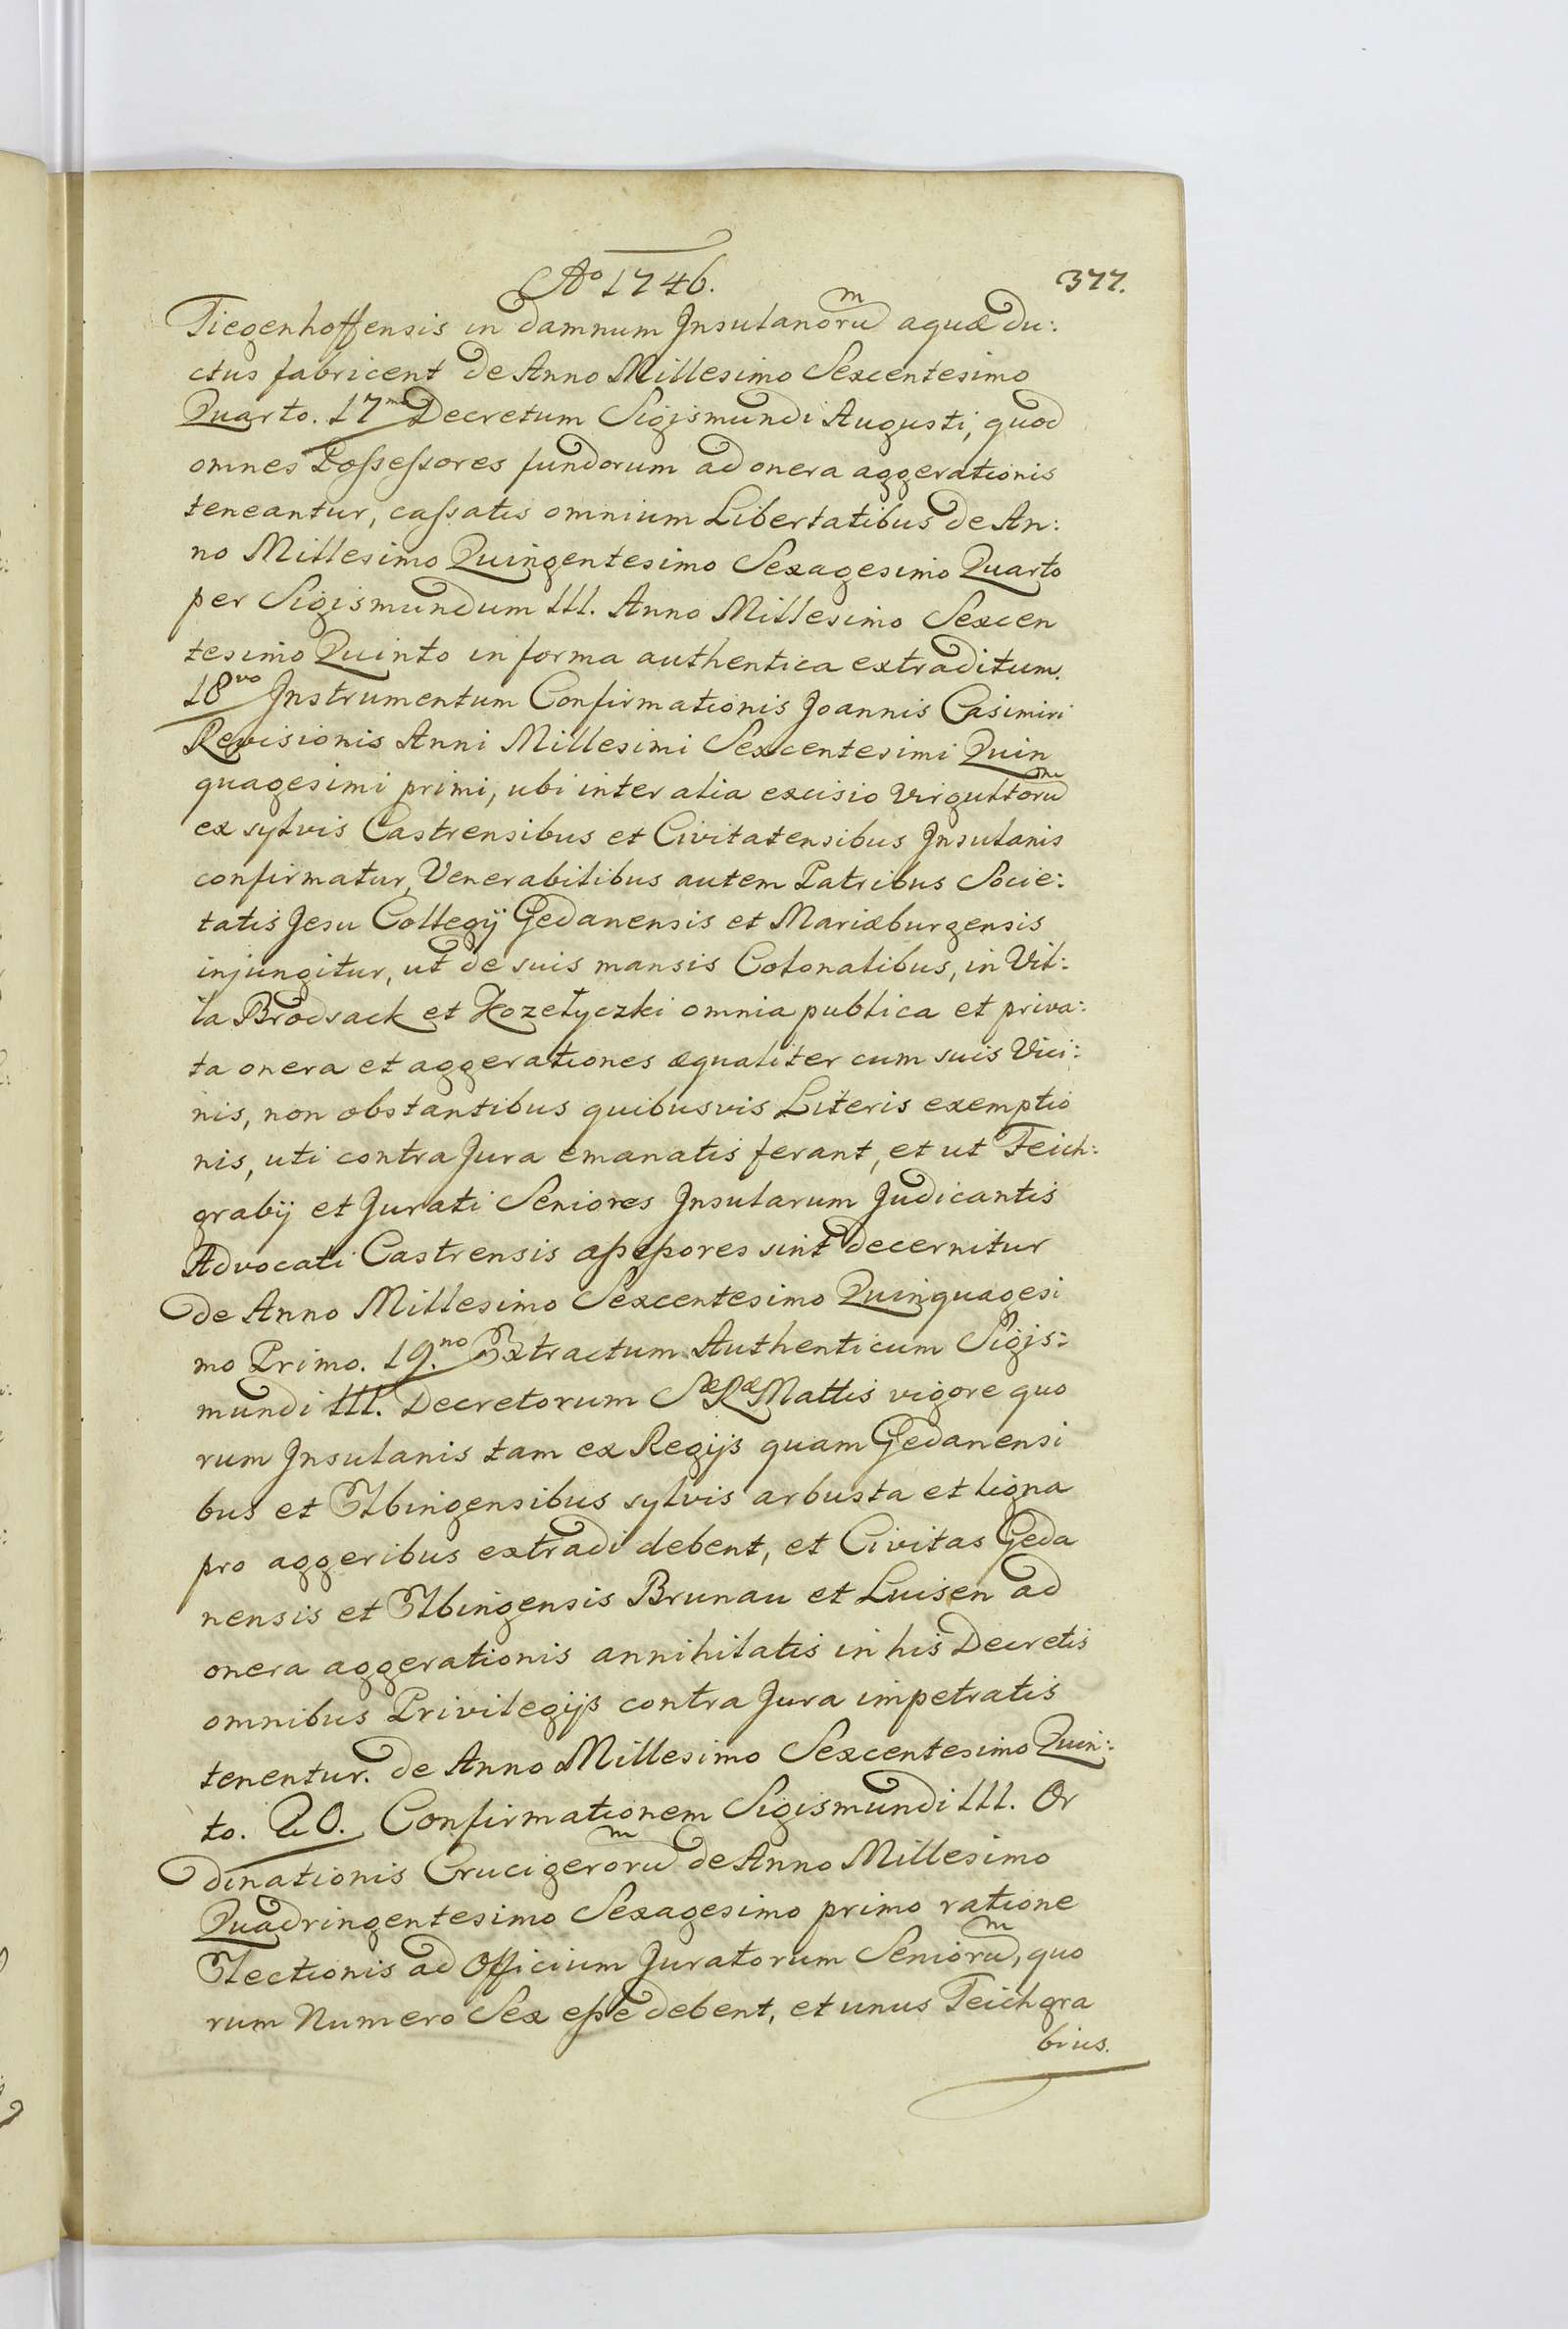 Aº 1746. 377.
Tiegenhoffensis in damnum Insulanorum aquædu:
ctus fabricent de Anno Millesimo Sexcentesimo
Quarto. 17mo Decretum Sigismundi Augusti, quod
omnes Possessores fundorum ad onera aggerationis
teneantur, cassatis omnium Libertatibus de An:
no Millesimo Quingentesimo Sexagesimo Quarto
per Sigismundum III. Anno Millesimo Sexcen
tesimo Quinto in forma authentica extraditum.
18vo Instrumentum Confirmationis Joannis Casimiri
Revisionis Anni Millesimi Sexcentesimi Quin
quagesimi primi, ubi inter alia excisio Virgultorum
ex sylvis Castrensibus et Civitatensibus Insulanis
confirmatur, Venerabilibus autem Patribus Socie:
tatis Jesu Collegij Gedanensis et Mariæburgensis
injungitur, ut de suis mansis Colonalibus, in Vil:
la Brodsack et Kozełyczki omnia publica et priva:
ta onera et aggerationes æqualiter cum suis Vici:
nis, non obstantibus quibusvis Literis exemptio
nis, uti contra Jura emanatis ferant, et ut Teich:
grabij et Jurati Seniores Insularum Judicantis
Advocati Castrensis assessores sint decernitur
de Anno Millesimo Sexcentesimo Quinquagesi
mo Primo. 19.no Extractum Authenticum Sigis:
mundi III. Decretorum Sæ Ræ Mattis vigore quo
rum Insulanis tam ex Regijs quam Gedanensi
bus et Elbingensibus sylvis arbusta et ligna
pro aggeribus extradi debent, et Civitas Geda
nensis et Elbingensis Brunau et Luisen ad
onera aggerationis annihilatis in his Decretis
omnibus Privilegijs contra Jura impetratis
tenentur. de Anno Millesimo Sexcentesimo Quin:
to. 20. Confirmationem Sigismundi III. Or
dinationis Crucigerorum de Anno Millesimo
Quadringentesimo Sexagesimo primo ratione
Electionis ad Officium Juratorum Seniorum, quo
rum Numero Sex esse debent, et unus Teichgra
bius.